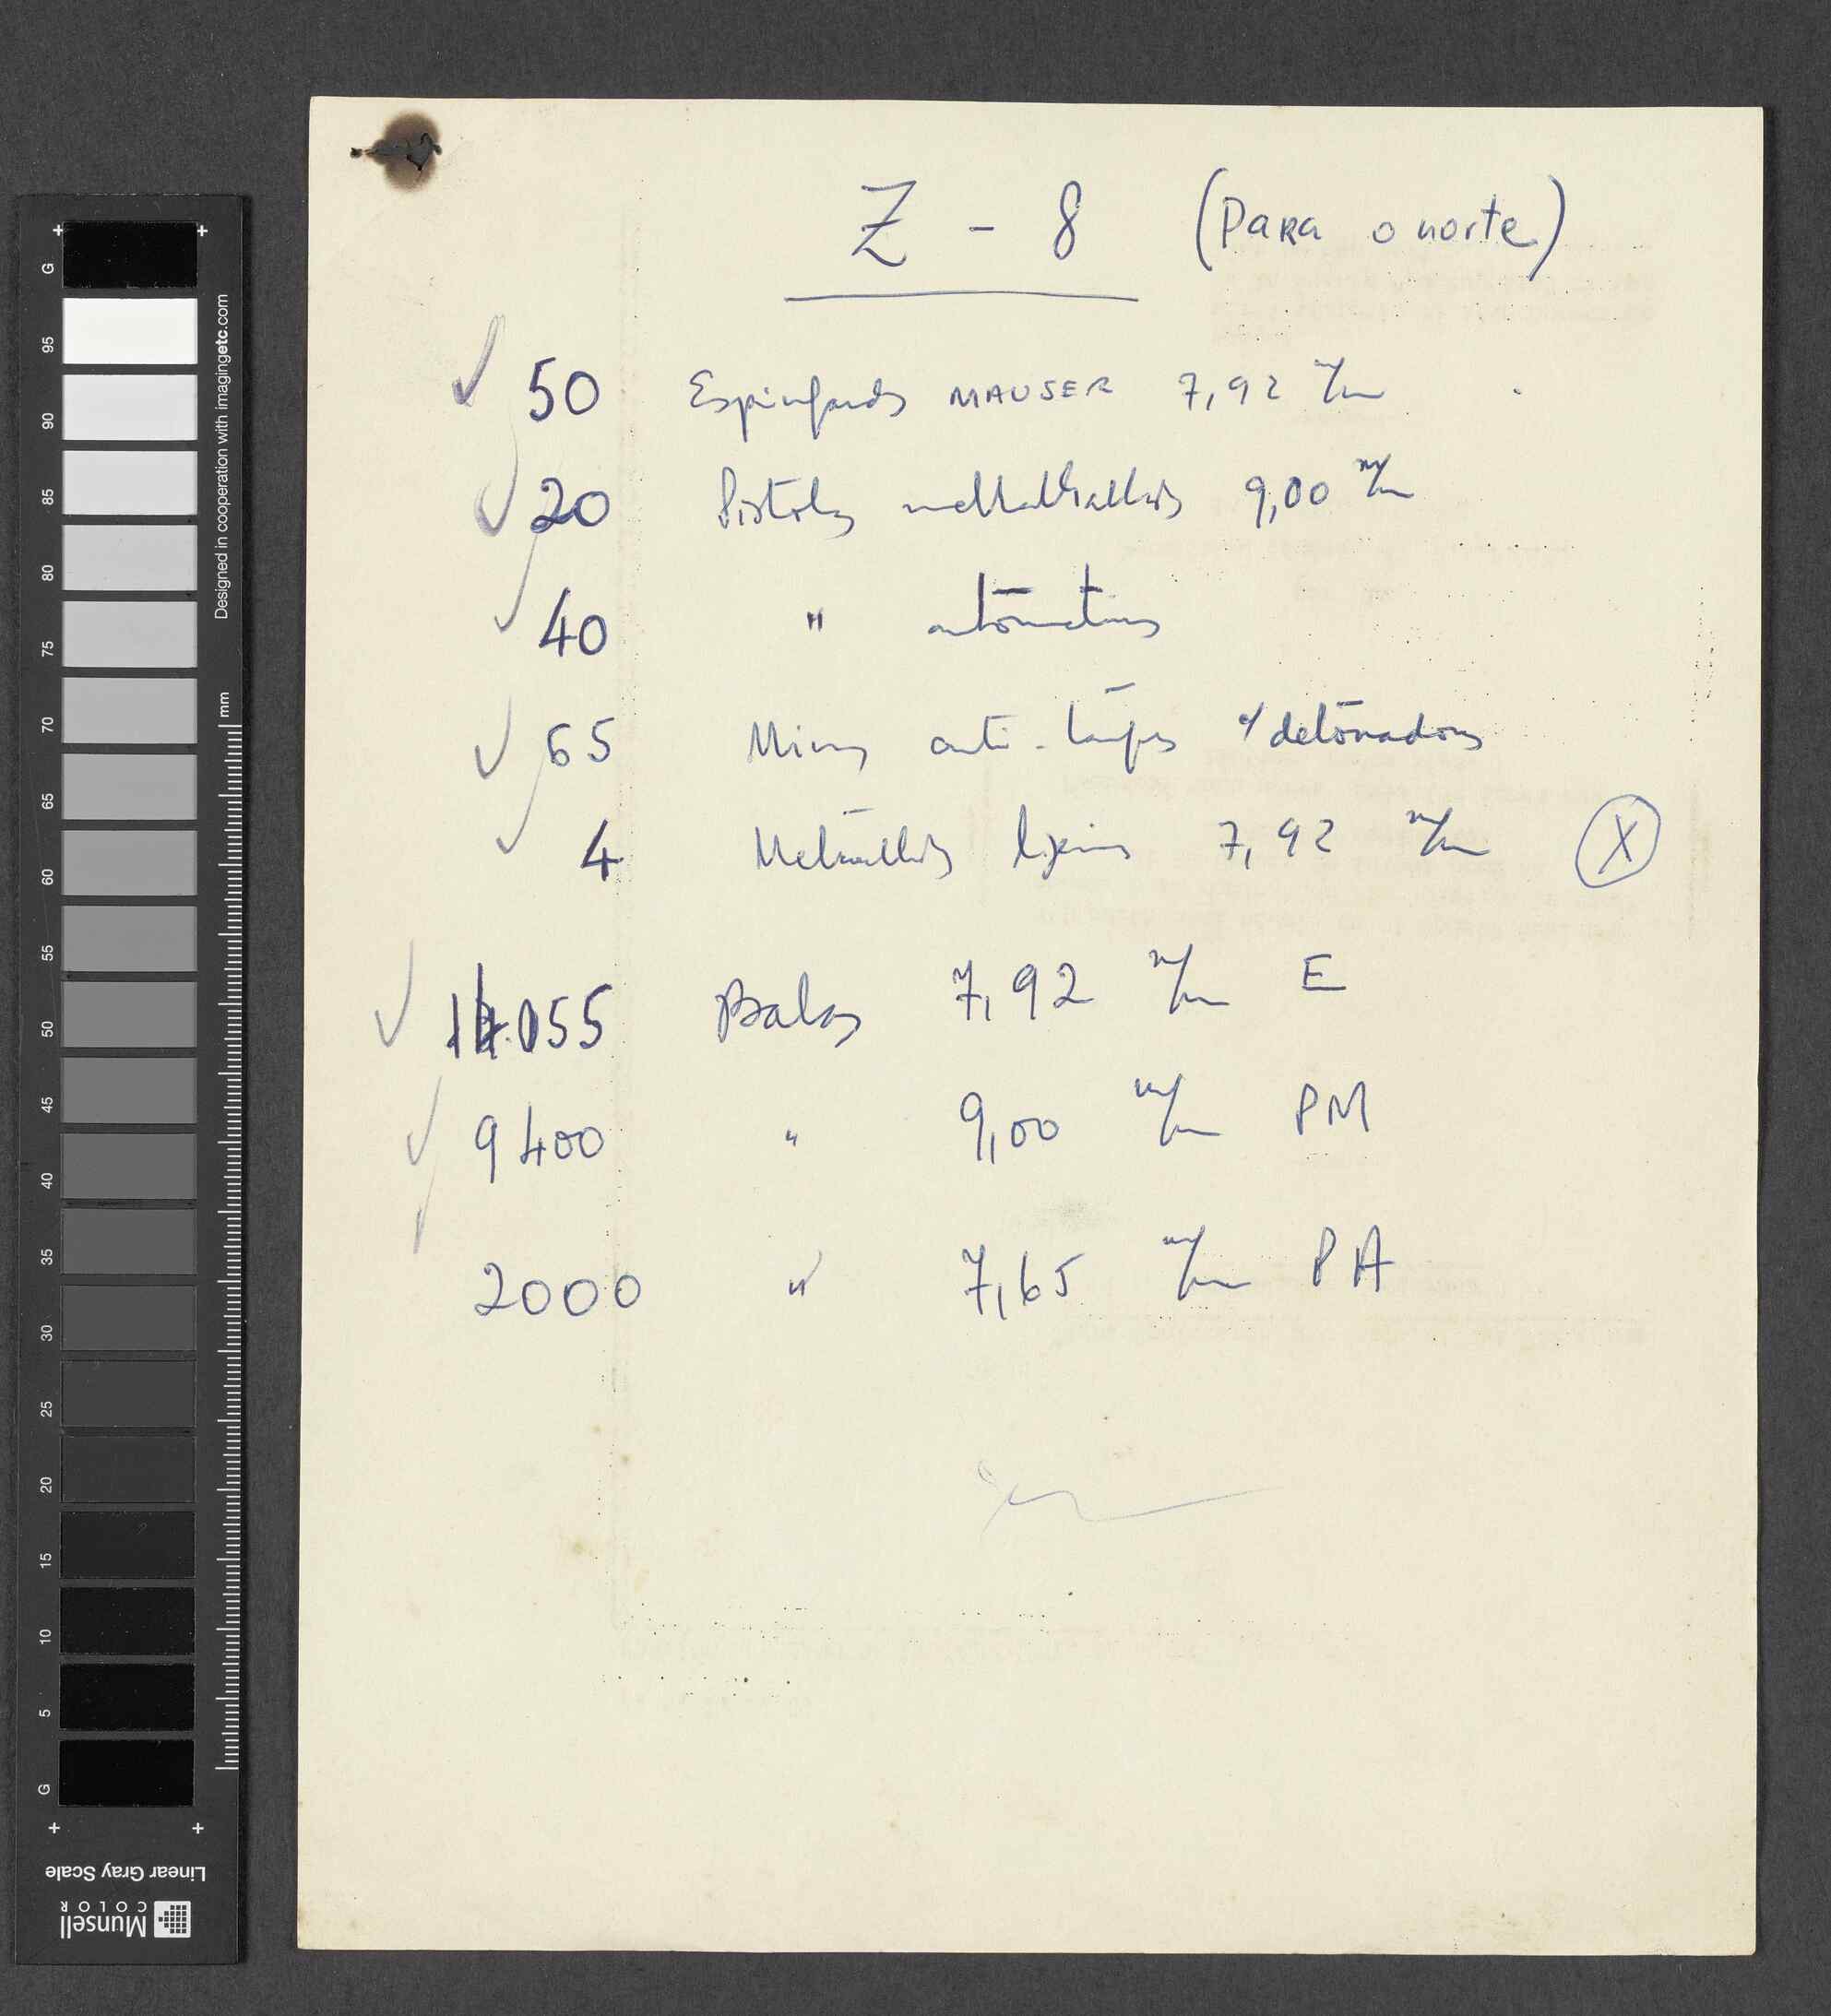 Z - 8 (Para o norte)
✓ 50 Espingardas MAUSER 7,92 m/m
✓ 20 Pistolas metralhadoras 9,00 m/m
✓ 40 " automáticas
✓ 65 Minas anti-tanques c/ detonadores
✓ 4 Metralhadoras ligeiras 7,92 m/m X
✓ 055 Balas 7,92 m/m E
✓ 9400 " 9,00 m/m PM
✓ 2000 " 7,65 m/m PA
G
95
90
85
80
75
70
65
60
55
50
45
40
35
30
25
20
15
10
5
G
Designed in cooperation with imagingetc.com
mm
Linear Gray Scale
Munsell
COLOR